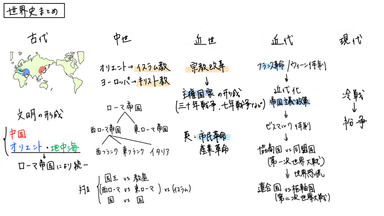 世界史まとめ
古代
文明の形成
中国
オリエント・地中海
ローマ帝国により統一
中世
オリエント→イスラム教
ヨーロッパ→キリスト教
ローマ帝国
西ローマ帝国 東ローマ帝国
西フランク 東フランク イタリア
対立
国王 vs 教皇
西ローマ vs 東ローマ
国 vs 国
vs イスラム
近世
宗教改革
主権国家の形成
(三十年戦争、七年戦争など)
英:市民革命
産業革命
近代
フランス革命/ウィーン体制
近代化
帝国主義政策
ビスマルク体制
協商国 vs 同盟国
(第一次世界大戦)
世界恐慌
連合国 vs 枢軸国
(第二次世界大戦)
現代
冷戦